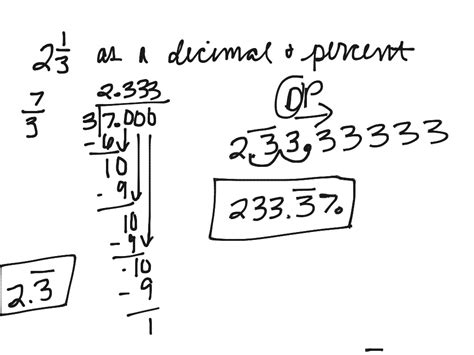 2 1/3 as a decimal & percent
7/3
2.333
3)7.000
-6
10
-9
10
-9
10
-9
1
2.3̅
DP
2.3̅3.33333
233.3̅%